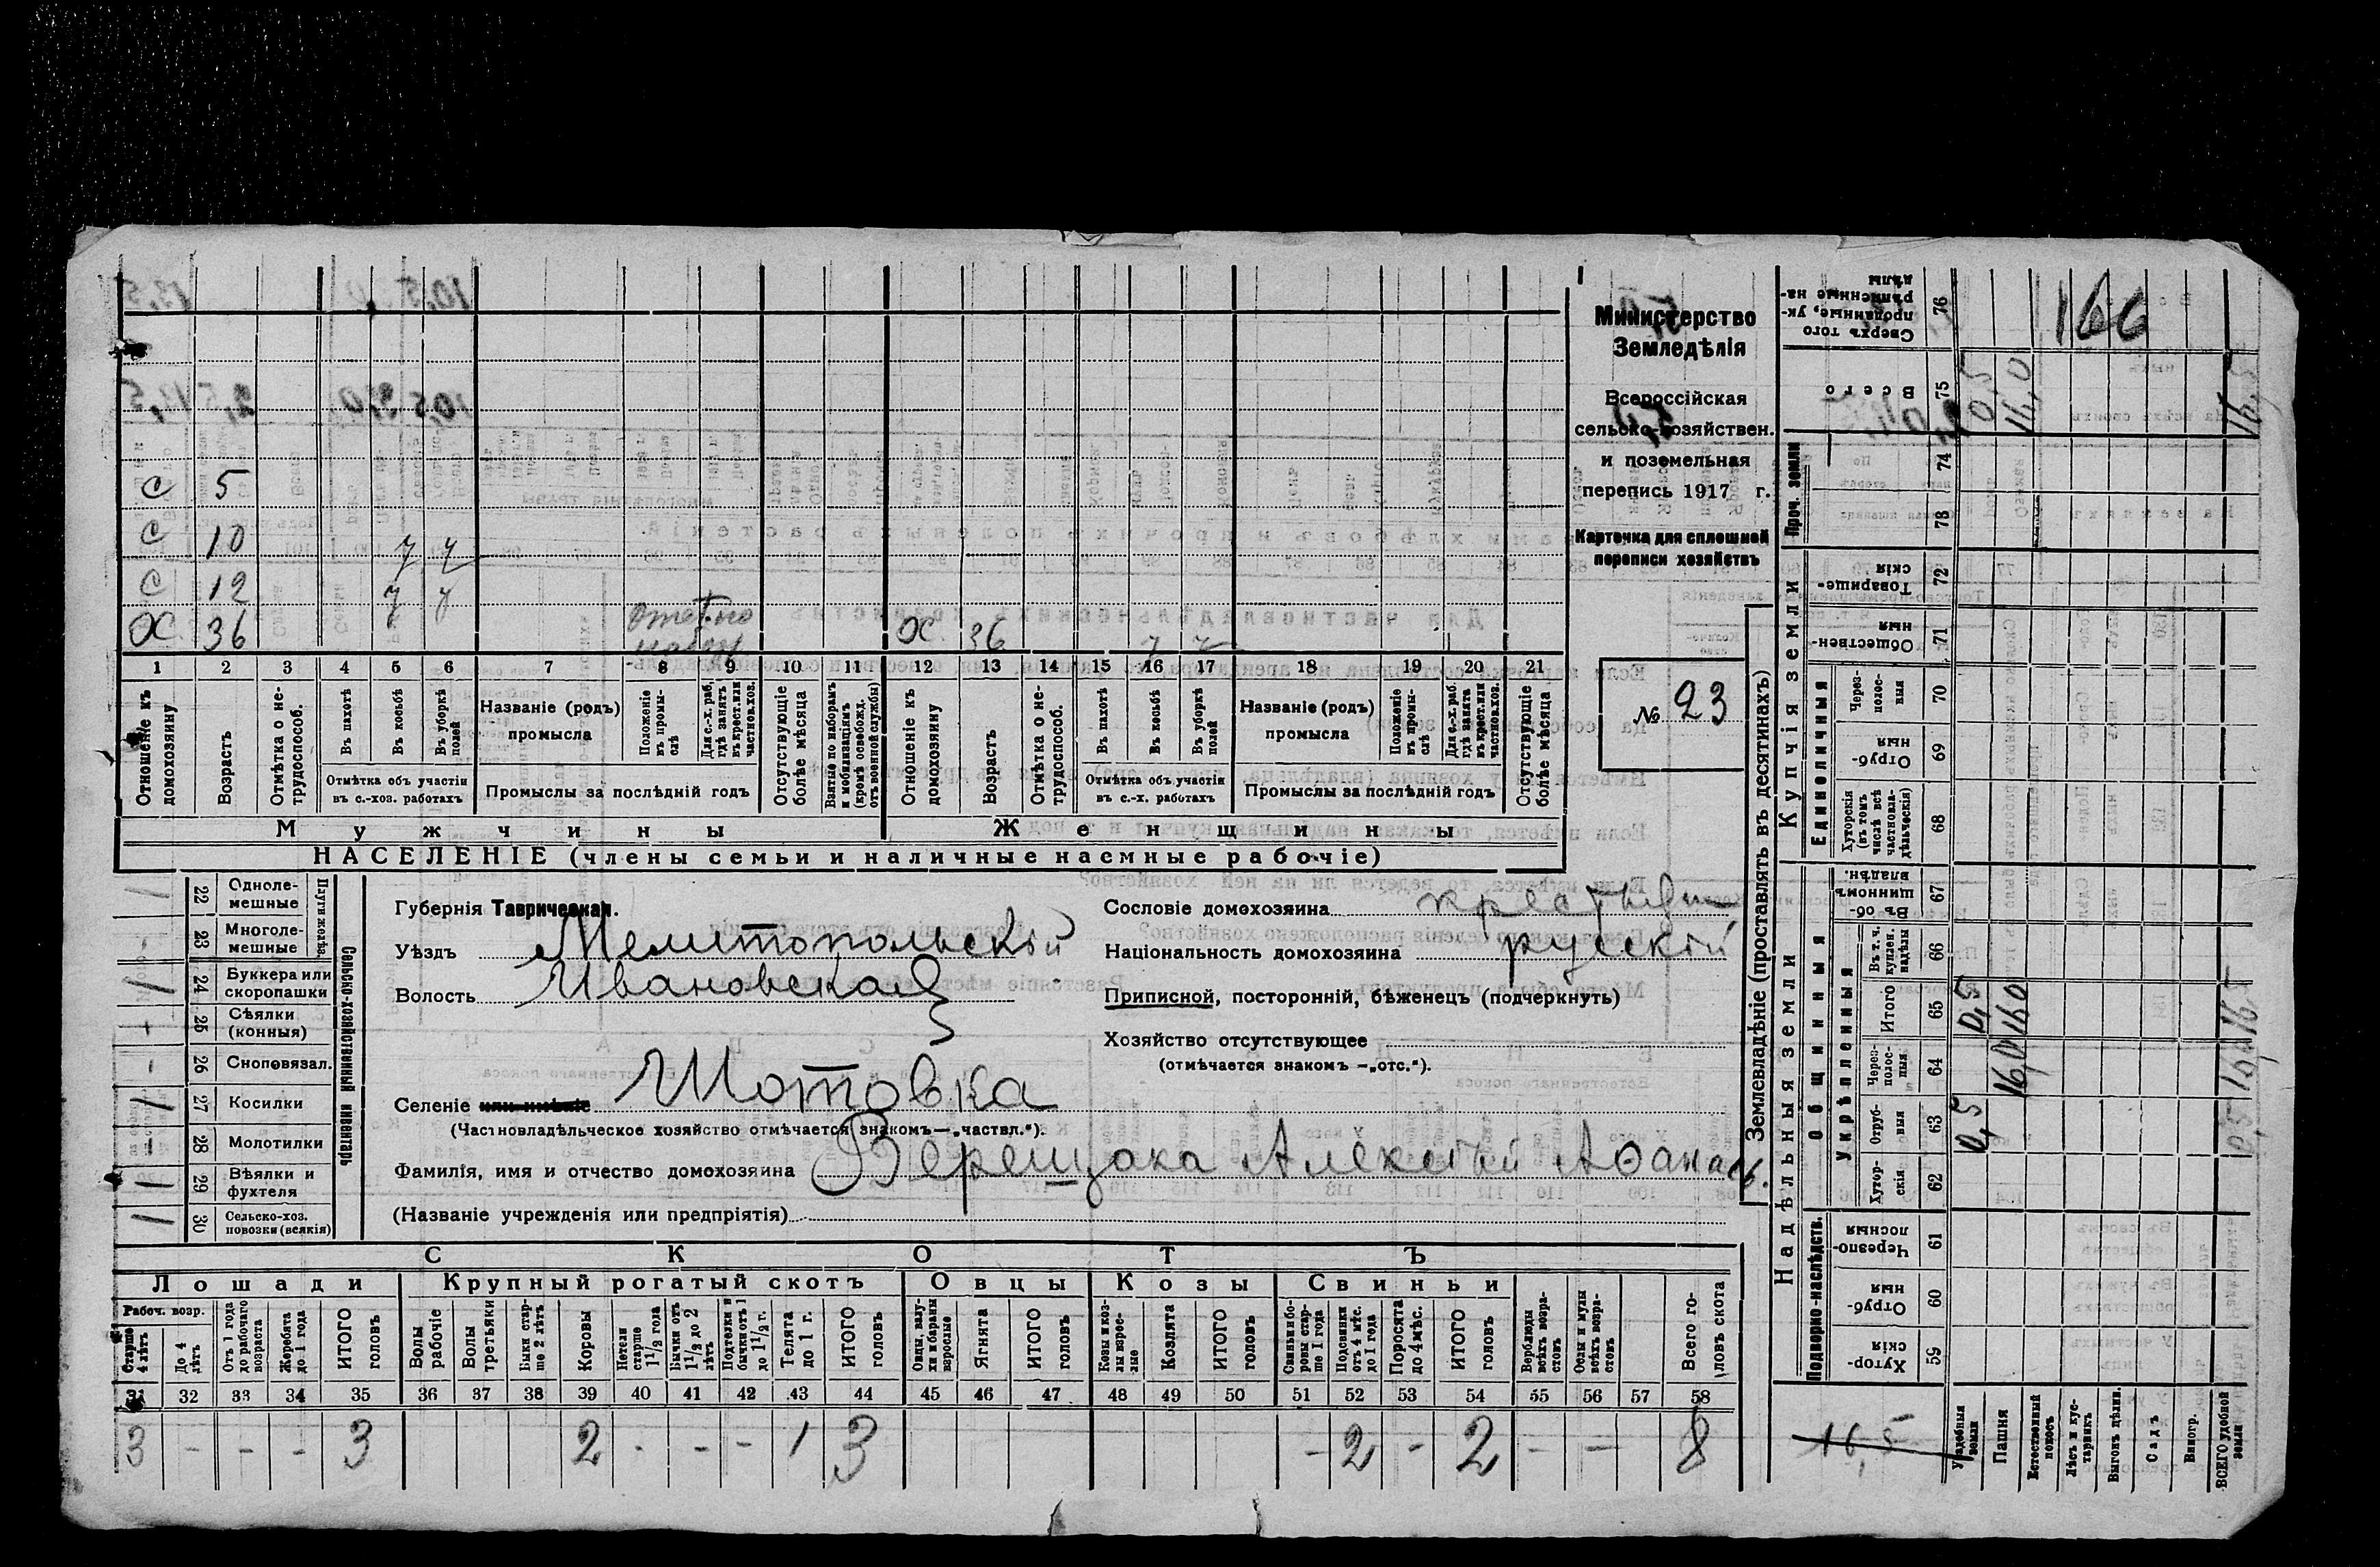 Министерство
Земледѣлія
Всероссійская
сельско-хозяйствен.
и поземельная
перепись 1917 г.
Карточка для сплошной
переписи хозяйствъ
№ 23
С 5
С 10 7 7
С 12 7 7
ОХ 36 ОХ. 36 7 7
1 2 3 4 5 6 7 8 9 10 11 12 13 14 15 16 17 18 19 20 21
Отношеніе къ домохозяину
Возрастъ
Отмѣтка о нетрудоспособ.
Въ пахотѣ
Въ косьбѣ
Въ уборкѣ полей
Отмѣтка объ участіи въ с.-хоз. работахъ
Названіе (родъ) промысла
Положеніе въ промыслѣ
Для с.-х. раб. гдѣ занятъ въ крест. или частнов. хоз.
Промыслы за послѣдній годъ
Отсутствующіе болѣе мѣсяца
Взятые по наборамъ и мобилизаціямъ (кромѣ освобожд. отъ военной службы)
Отношеніе къ домохозяину
Возрастъ
Отмѣтка о нетрудоспособ.
Въ пахотѣ
Въ косьбѣ
Въ уборкѣ полей
Отмѣтка объ участіи въ с.-х. работахъ
Названіе (родъ) промысла
Положеніе въ промыслѣ
Для с.-х. раб. гдѣ занята въ крест. или частнов. хоз.
Промыслы за послѣдній годъ
Отсутствующіе болѣе мѣсяца
Мужчины Женщины
НАСЕЛЕНІЕ (члены семьи и наличные наемные рабочіе)
Сельско-хозяйственный инвентарь
22 Однолемешные
23 Многолемешные
24 Буккера или скоропашки
25 Сѣялки (конныя)
26 Сноповязал.
27 Косилки
28 Молотилки
29 Вѣялки и фухтеля
30 Сельско-хоз. повозки (всякія)
Губернія Таврическая.
Уѣздъ Мелитопольскій
Волость Ивановская
Селеніе или имѣніе Шотовка
(Частновладѣльческое хозяйство отмѣчается знакомъ—„частвл.“).
Фамилія, имя и отчество домохозяина Верещака Алексѣй Аѳанас.
(Названіе учрежденія или предпріятія)
Сословіе домохозяина крестьян
Національность домохозяина русскій
Приписной, посторонній, бѣженецъ (подчеркнуть)
Хозяйство отсутствующее
(отмѣчается знакомъ —„отс.“).
СКОТЪ
Лошади Крупный рогатый скотъ Овцы Козы Свиньи
Рабоч. возр.
Старше 4 лѣтъ
До 4 лѣтъ
Отъ 1 года до рабочаго возраста
Жеребята до 1 года
ИТОГО головъ
Волы рабочіе
Волы третьяки
Быки старше 2 лѣтъ
Коровы
Нетели старше 1 1/2 года
Бычки отъ 1 1/2 до 2 лѣтъ
Подтелки и бычки отъ 1 до 1 1/2 г.
Телята до 1 г.
ИТОГО головъ
Овцы, валухи и бараны взрослые
Ягнята
ИТОГО головъ
Козы и козлы взрослые
Козлята
ИТОГО головъ
Свиньи и боровы старше 1 года
Подсвинки отъ 4 мѣс. до 1 года
Поросята до 4 мѣс.
ИТОГО головъ
Верблюды всѣхъ возрастовъ
Ослы и мулы всѣхъ возрастовъ
Всего головъ скота
31 32 33 34 35 36 37 38 39 40 41 42 43 44 45 46 47 48 49 50 51 52 53 54 55 56 57 58
3 - - - 3 2 - - - 1 3 - 2 - 2 - - 8
Землевладѣніе (проставлять въ десятинахъ)
Надѣльныя земли Купчія земли Проч. земли
Подворно-наслѣдств. Общинныя Единоличныя
Укрѣпленныя
59 Хуторскія
60 Отрубныя
61 Черезполосныя
62 Хуторскія
63 Отрубныя 0,5
64 Черезполосныя 16,0
65 Итого 0,5 16,0
66 Въ т. ч. куплен. надѣлы
67 Въ общинномъ владѣн.
68 Хуторскія (въ томъ числѣ всѣ частновладѣльческія)
69 Отрубныя
70 Черезполосныя
71 Общественныя
72 Товарищескія
73
74
75 Всего 0,5 16,0 16,5
76 Сверхъ того проданные, укрѣпленные надѣлы
166
16,5
Усадебныя земли
Пашня
Естественный покосъ
Лѣсъ и кустарникъ
Выгонъ дѣлин.
Садъ
Виногр.
ВСЕГО удобной земли